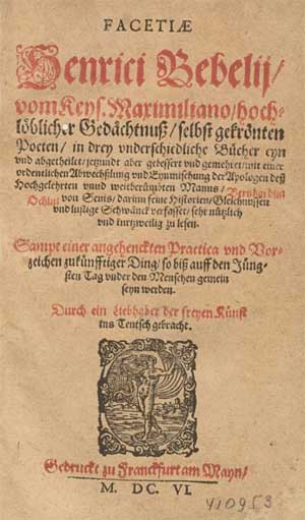 FACETIÆ
Henrici Bebelij/
vom Keys. Maximiliano/hoch-
löblicher Gedächtnuß/selbst gekrönten
Poeten/in drey vnderschiedliche Bücher eyn
vnd abgetheilet/jetzundt aber gebessert vnd gemehret/mit einer
ordenlichen Abwechßlung vnd Eynmischung der Apologen deß
Hochgelehrten vnnd weitberühmten Manns/ Bernhardini
Ochini von Senis/darinn feine Historien/Gleichnussen
vnd lustige Schwänck verfasset/sehr nützlich
vnd kurtzweilig zu lesen.
Sampt einer angehenckten Practica vnd Vor-
zeichen zukünfftiger Ding/so biß auff den Jüng-
sten Tag vnder den Menschen gemein
seyn werden.
Durch ein Liebhaber der freyen Künst
ins Teutsch gebracht.
Gedruckt zu Franckfurt am Mayn/
M. DC. VI.
410953